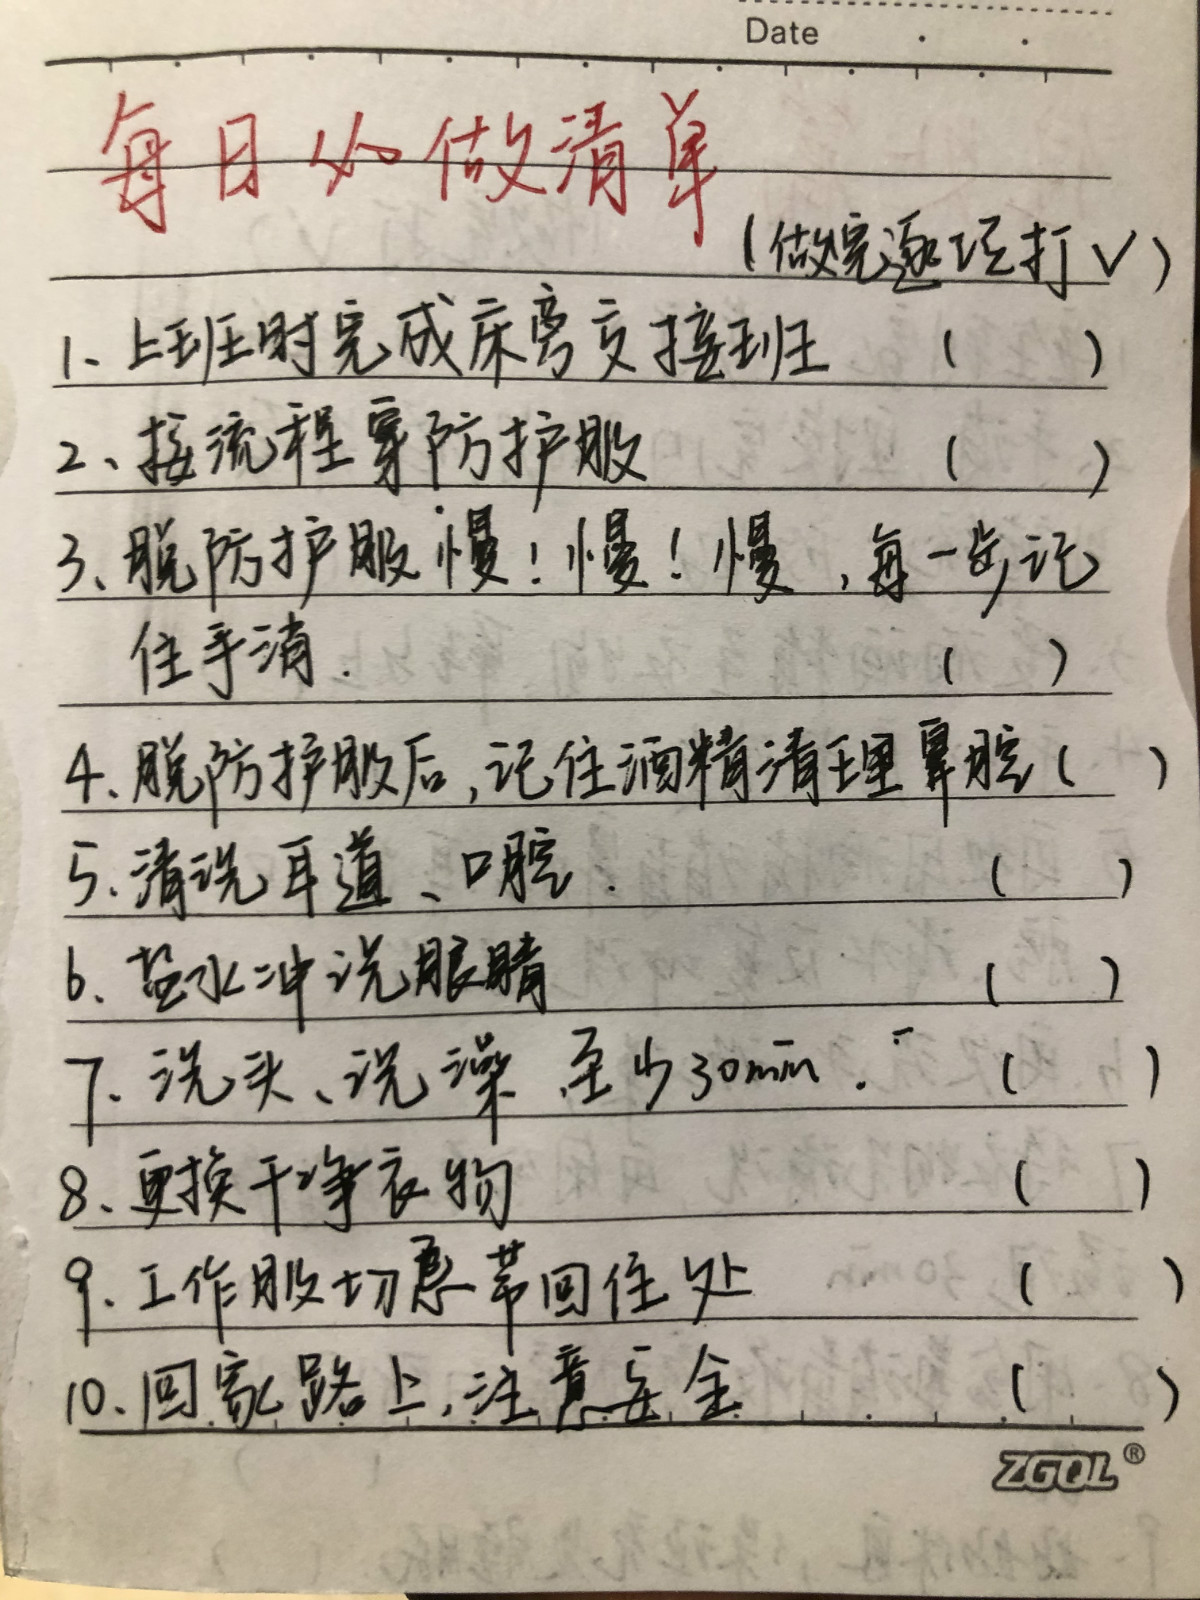 Date
每日必做清单
(做完逐记打√)
1、上班时完成床旁交接班 ( )
2、按流程穿防护服 ( )
3、脱防护服慢！慢！慢、每一步记
住手消. ( )
4、脱防护服后,记住酒精清理鼻腔( )
5、清洗耳道、口腔. ( )
6、盐水冲洗眼睛 ( )
7、洗头、洗澡 至少30min. ( )
8、更换干净衣物 ( )
9、工作服切忌带回住处 ( )
10、回家路上,注意安全 ( )
ZGOL®